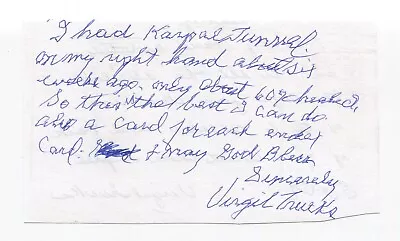 I had Karpal Tunnsal
on my right hand about six
weeks ago. only about 60% healed.
So this the best I can do.
also a card for each index
Card. & may God Bless
Sincerely
Virgil Trucks